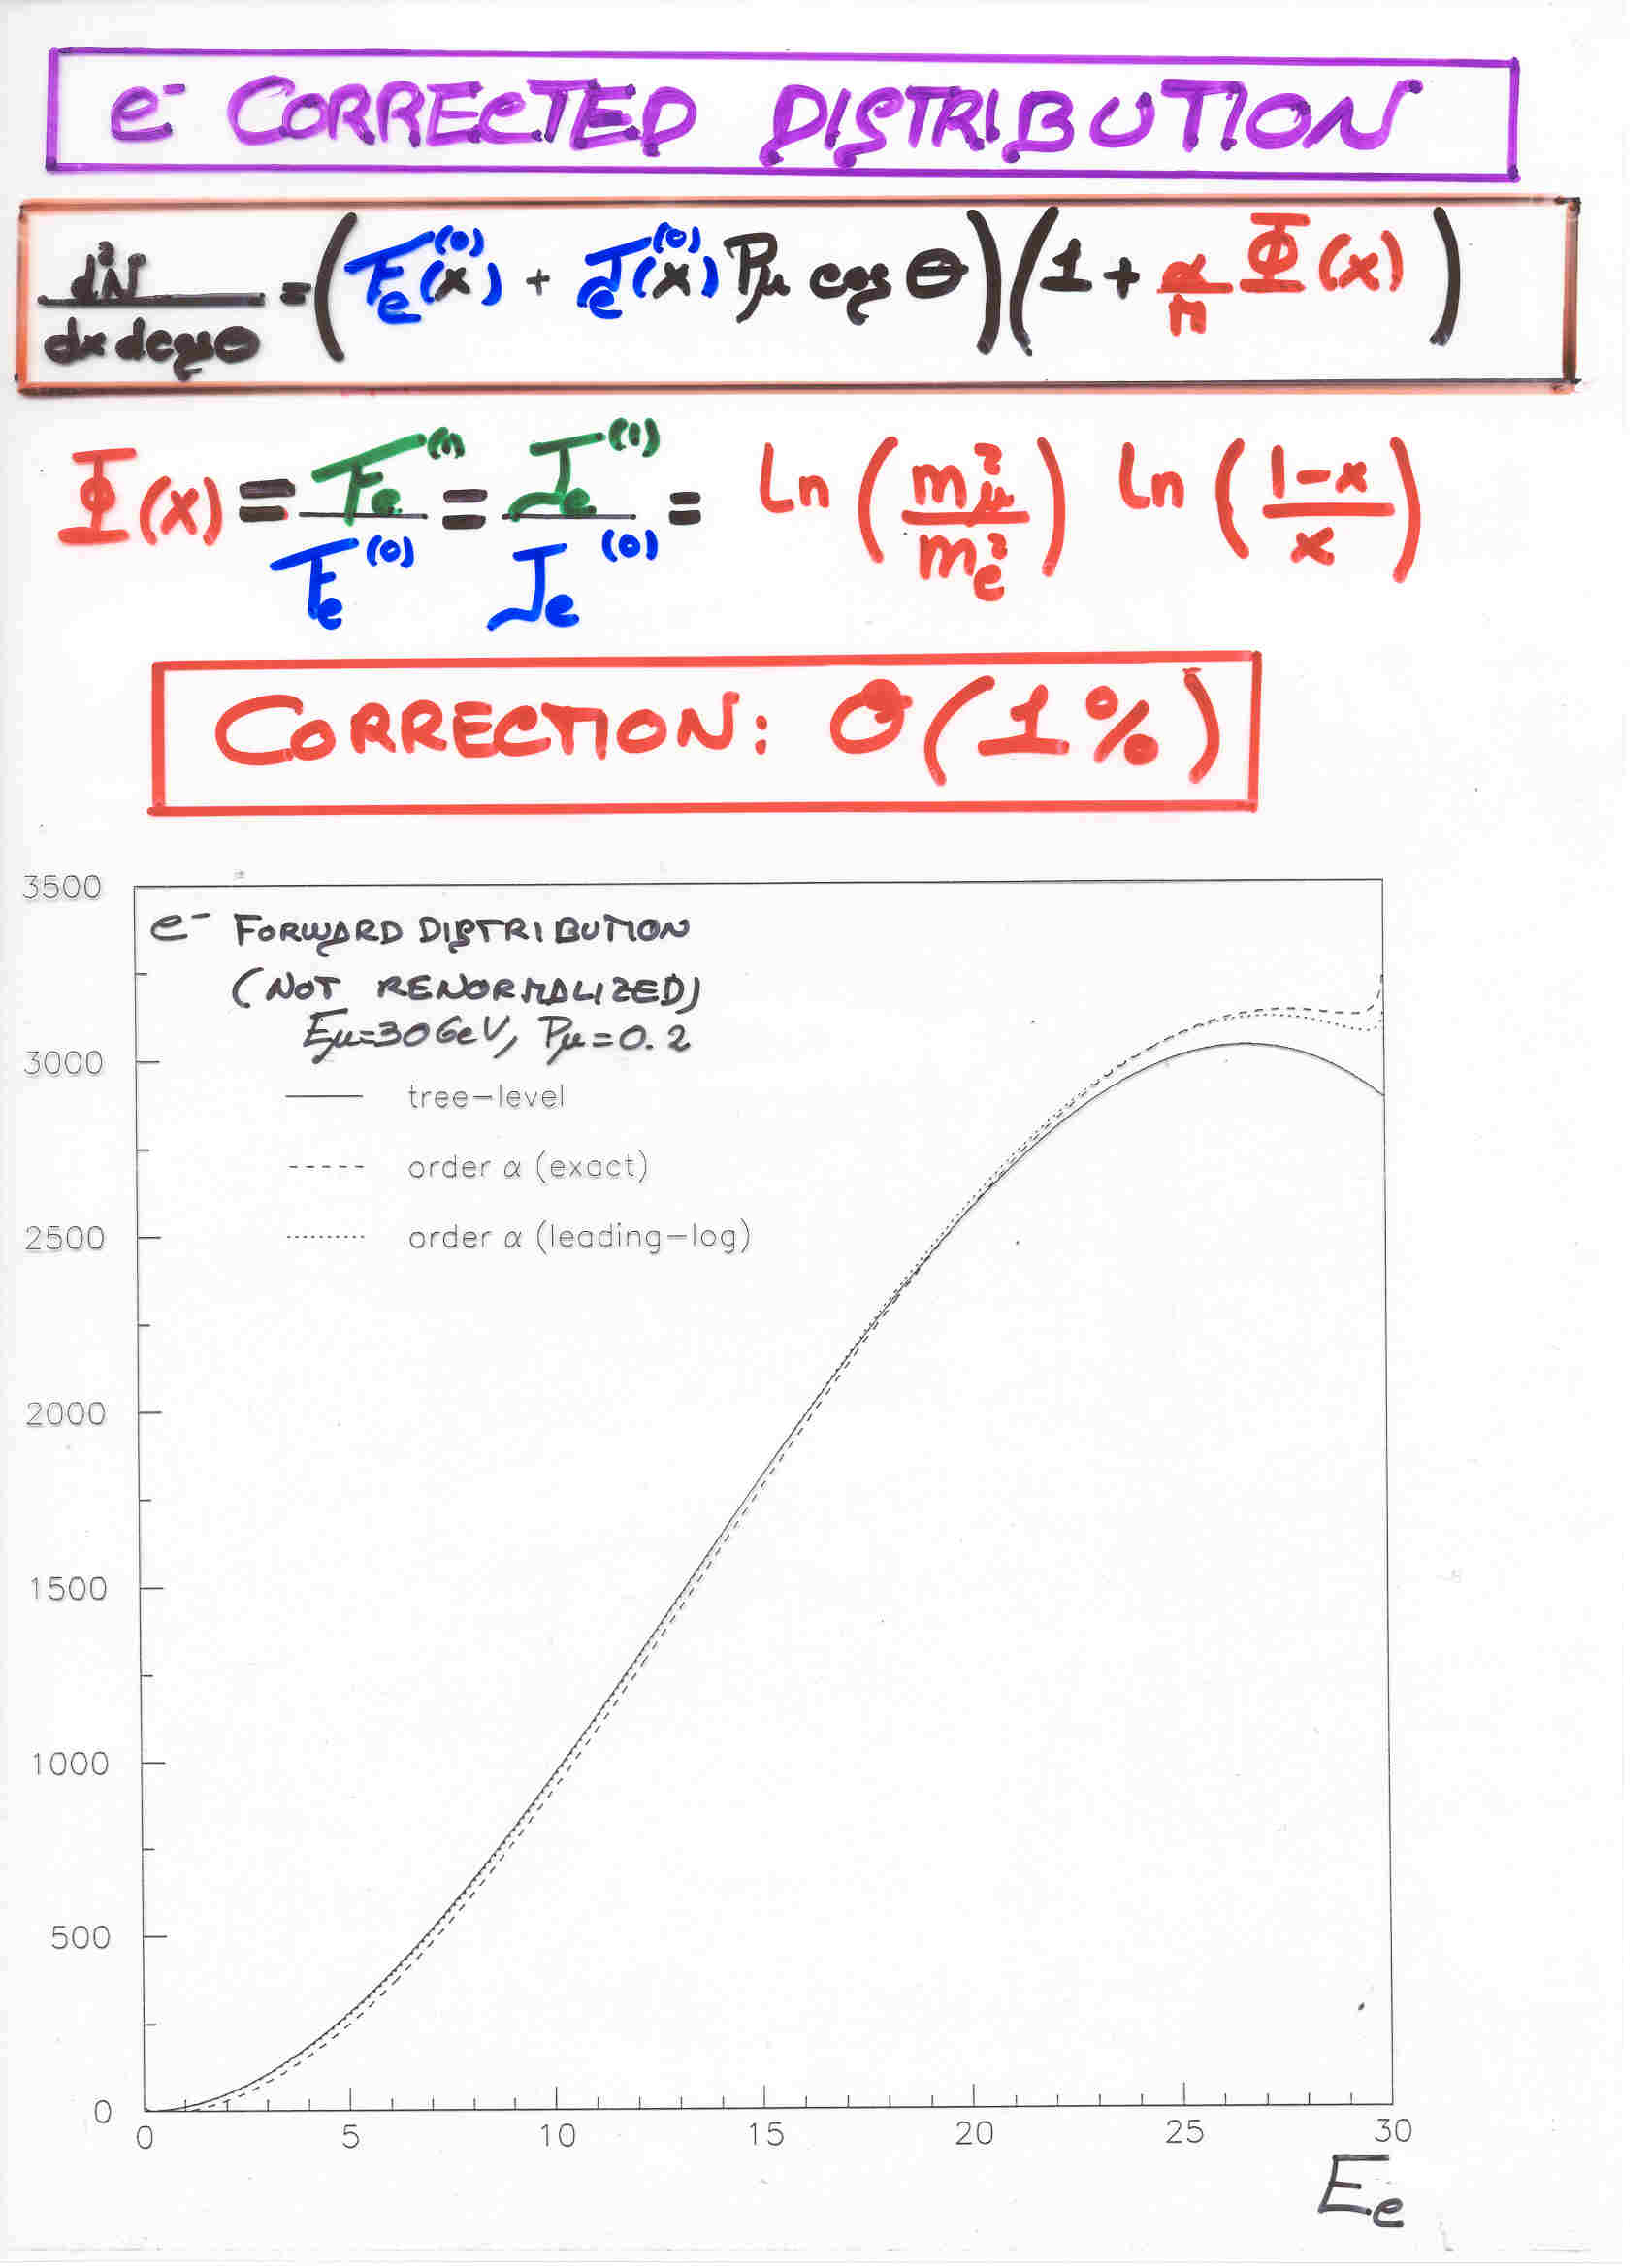 e⁻ CORRECTED DISTRIBUTION
d²N / dx dcosθ = (F_e^(0)(x) + J_e^(0)(x) P_μ cos θ)(1 + α/π Φ(x))
Φ(x) = F_e^(1) / F_e^(0) = J_e^(1) / J_e^(0) = ln (m_μ² / m_e²) ln (1-x / x)
CORRECTION: O(1%)
3500
e⁻ FORWARD DISTRIBUTION
(NOT RENORMALIZED)
E_μ=30GeV, P_μ=0.2
3000
tree-level
order α (exact)
2500
order α (leading-log)
2000
1500
1000
500
0
0 5 10 15 20 25 30
E_e